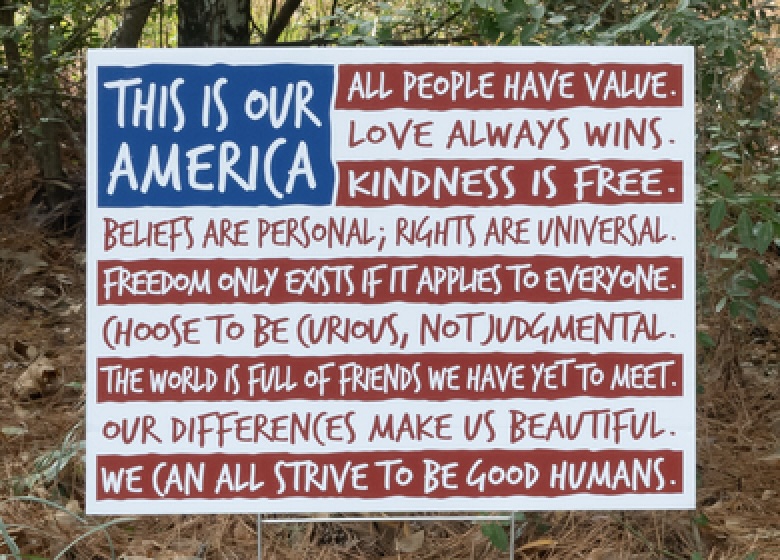 THIS IS OUR
AMERICA
ALL PEOPLE HAVE VALUE.
LOVE ALWAYS WINS.
KINDNESS IS FREE.
BELIEFS ARE PERSONAL; RIGHTS ARE UNIVERSAL.
FREEDOM ONLY EXISTS IF IT APPLIES TO EVERYONE.
CHOOSE TO BE CURIOUS, NOT JUDGMENTAL.
THE WORLD IS FULL OF FRIENDS WE HAVE YET TO MEET.
OUR DIFFERENCES MAKE US BEAUTIFUL.
WE CAN ALL STRIVE TO BE GOOD HUMANS.